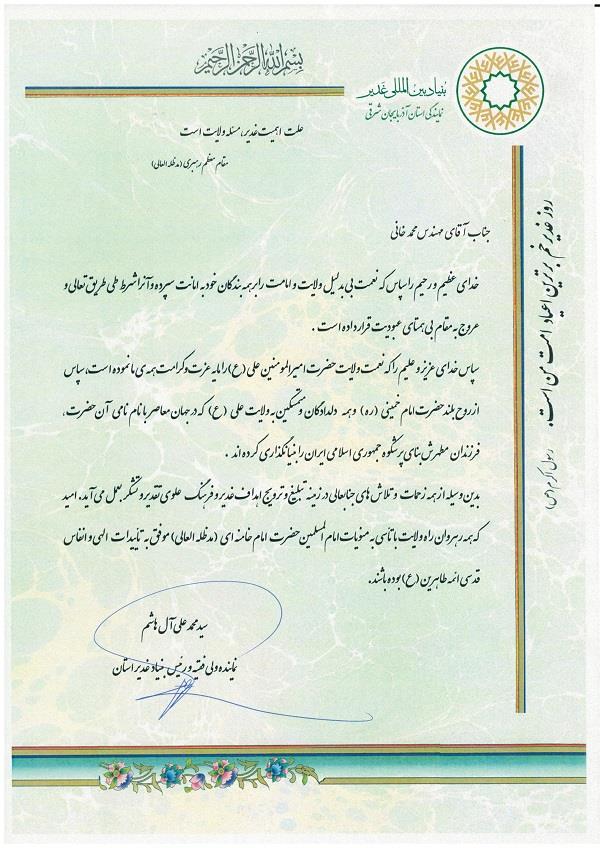 بسم الله الرحمن الرحیم
بنیاد بین المللی غدیر
نمایندگی استان آذربایجان شرقی
علت اهمیت غدیر، مسئله ولایت است
مقام معظم رهبری (مدظله العالی)
جناب آقای مهندس محمدخانی
خدای عظیم و رحیم را سپاس که نعمت بی بدلیل ولایت و امامت را بر همه بندگان خود به امانت سپرده و آنرا شرط طی طریق تعالی و
عروج به مقام بی همتای عبودیت قرار داده است .
سپاس خدای عزیز و علیم را که نعمت ولایت حضرت امیرالمومنین علی (ع) را مایه عزت و کرامت همه ی ما نموده است، سپاس
از روح بلند حضرت امام خمینی (ره) و همه دلدادگان و متمسکین به ولایت علی (ع) که در جهان معاصر با نام نامی آن حضرت،
فرزندان مطهرش بنای پرشکوه جمهوری اسلامی ایران را بنیانگذاری کرده اند .
بدین وسیله از همه زحمات و تلاش های جنابعالی در زمینه تبلیغ و ترویج اهداف غدیر و فرهنگ علوی تقدیر و تشکر بعمل می آید. امید
که همه رهروان راه ولایت با تاسی به منویات امام المسلمین حضرت امام خامنه ای (مدظله العالی) موفق به تأییدات الهی و انفاس
قدسی ائمه طاهرین (ع) بوده باشند.
سید محمد علی آل هاشم
نماینده ولی فقیه و رئیس بنیاد غدیر استان
روز غدیر خم برترین اعیاد امت من است.
رسول اکرم (ص)